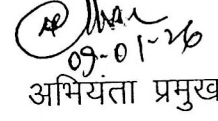 09-01-26
अभियंता प्रमुख